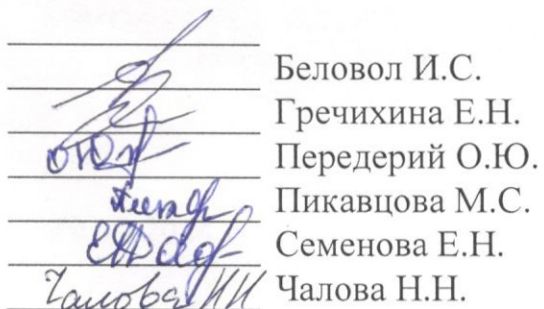 Беловол И.С.
Гречихина Е.Н.
Передерий О.Ю.
Пикавцова М.С.
Семенова Е.Н.
Чалова НН Чалова Н.Н.